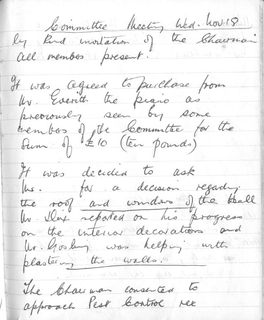 Committee Meeting Wed. Nov. 18
by kind invitation of the Chairman
all members present.
It was agreed to purchase from
Mr. Everitt the piano as
previously seen by some
members of the Committee for the
sum of £10 (ten pounds)
It was decided to ask
Mr. for a decision regarding
the roof and windows of the Hall
Mr reported on his progress
on the interior decorations and
Mr. Gosling was helping with
plastering the walls.
The Chairman consented to
approach Pest Control